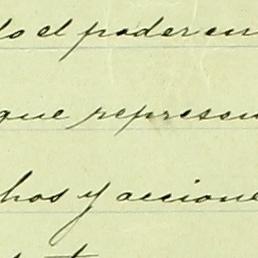 do el poder en
que represen
chos y accione